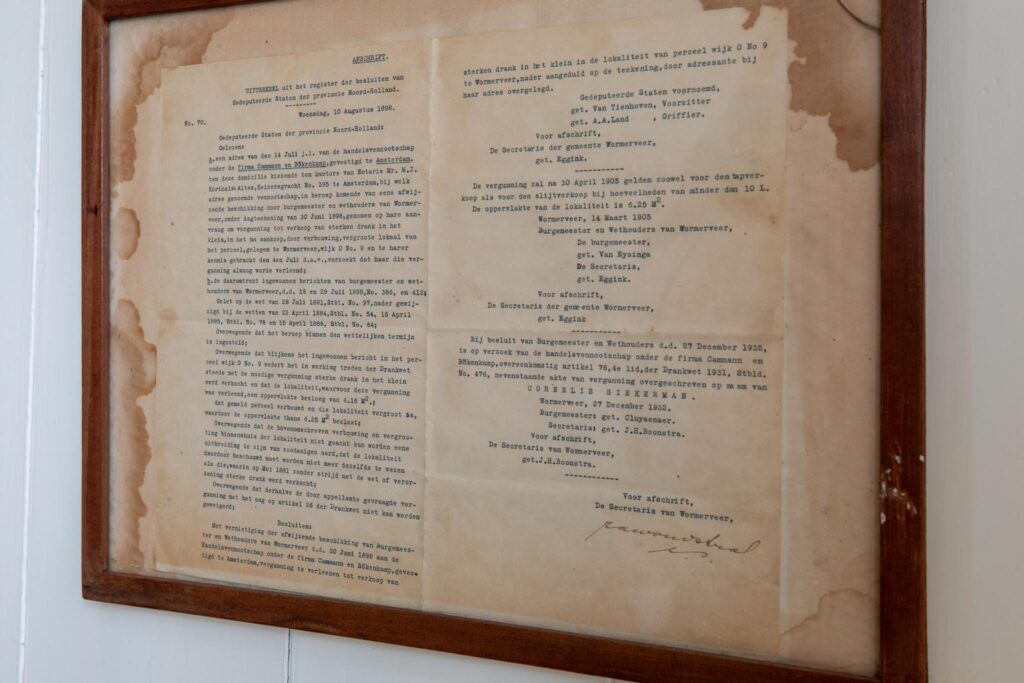 AFSCHRIFT.
UITTREKSEL uit het register der besluiten van
Gedeputeerde Staten der provincie Noord-Holland.
Woensdag, 10 Augustus 1898.
No. 70.
Gedeputeerde Staten der provincie Noord-Holland:
Gelezen:
a.een adres van den 14 Juli j.l. van de handelsvennootschap
onder de firma Cammann en Bökenkamp,gevestigd te Amsterdam,
ten deze domicilie kiezende ten kantore van Notaris Mr. M.J.
Korthals-Altes,Keizersgracht No. 395 te Amsterdam,bij welk
adres genoemde vennootschap,in beroep komende van eene afwij-
zende beschikking door burgemeester en wethouders van Wormer-
veer,onder dagteekening van 30 Juni 1898,genomen op hare aan-
vraag om vergunning tot verkoop van sterken drank in het
klein,in het na aankoop,door verbouwing,vergroote lokaal van
het perceel,gelegen te Wormerveer,wijk O No. 9 en te harer
kennis gebracht den 4en Juli d.a.v.,verzoekt dat haar die ver-
gunning alsnog worde verleend;
b.de daaromtrent ingewonnen berichten van burgemeester en wet-
houders van Wormerveer,d.d. 19 en 29 Juli 1898,No. 386, en 412;
Gelet op de wet van 28 Juli 1881,Stbl. No. 97,nader gewij-
zigd bij de wetten van 23 April 1884,Stbl. No. 54, 16 April
1885, Stbl. No. 78 en 15 April 1886, Stbl. No. 64;
Overwegende dat het beroep binnen den wettelijken termijn
is ingesteld;
Overwegende dat blijkens het ingewonnen bericht in het per-
ceel wijk O No. 9 sedert het in werking treden der Drankwet
steeds met de noodige vergunning sterke drank in het klein
werd verkocht en dat de lokaliteit,waarvoor deze vergunning
was verleend,een oppervlakte besloeg van 4.16 M2.;
dat gemeld perceel verbouwd en die lokaliteit vergroot is,
waardoor de oppervlakte thans 6.25 M2 beslaat;
Overwegende dat de bovenomschreven verbouwing en vergroo-
ting binnenshuis der lokaliteit niet geacht kan worden eene
uitbreiding te zijn van zoodanigen aard,dat de lokaliteit
daardoor beschouwd moet worden niet meer dezelfde te wezen
als die,waarin op Mei 1881 zonder strijd met de wet of veror-
dening sterke drank werd verkocht;
Overwegende dat derhalve de door appellante gevraagde ver-
gunning met het oog op artikel 26 der Drankwet niet kan worden
geweigerd;
Besluiten:
Met vernietiging der afwijzende beschikking van Burgemees-
ter en Wethouders van Wormerveer d.d. 30 Juni 1898 aan de
Handelsvennootschap onder de firma Cammann en Bökenkamp,geves-
tigd te Amsterdam,vergunning te verleenen tot verkoop van
sterken drank in het klein in de lokaliteit van perceel wijk O No 9
te Wormerveer,nader aangeduid op de teekening,door adressante bij
haar adres overgelegd.
Gedeputeerde Staten voornoemd,
get. Van Tienhoven, Voorzitter
get. A.A.Land , Griffier.
Voor afschrift,
De Secretaris der gemeente Wormerveer,
get. Eggink.
De vergunning zal na 30 April 1905 gelden zoowel voor den tapver-
koop als voor den slijtverkoop bij hoeveelheden van minder dan 10 L.
De oppervlakte van de lokaliteit is 6.25 M2.
Wormerveer, 14 Maart 1905
Burgemeester en Wethouders van Wormerveer,
De burgemeester,
get. Van Eysinga
De Secretaris,
get. Eggink.
Voor afschrift,
De Secretaris der gemeente Wormerveer,
get. Eggink
Bij besluit van Burgemeester en Wethouders d.d. 27 December 1932,
is op verzoek van de handelsvennootschap onder de firma Cammann en
Bökenkamp,overeenkomstig artikel 76,4e lid,der Drankwet 1931, Stbld.
No. 476, nevenstaande akte van vergunning overgeschreven op naam van
CORNELIS SIEKERMAN.
Wormerveer, 27 December 1932.
Burgemeester: get. Cluysenaer.
Secretaris: get. J.H.Boonstra.
Voor afschrift,
De Secretaris van Wormerveer,
get.J.H.Boonstra.
Voor afschrift,
De Secretaris van Wormerveer,